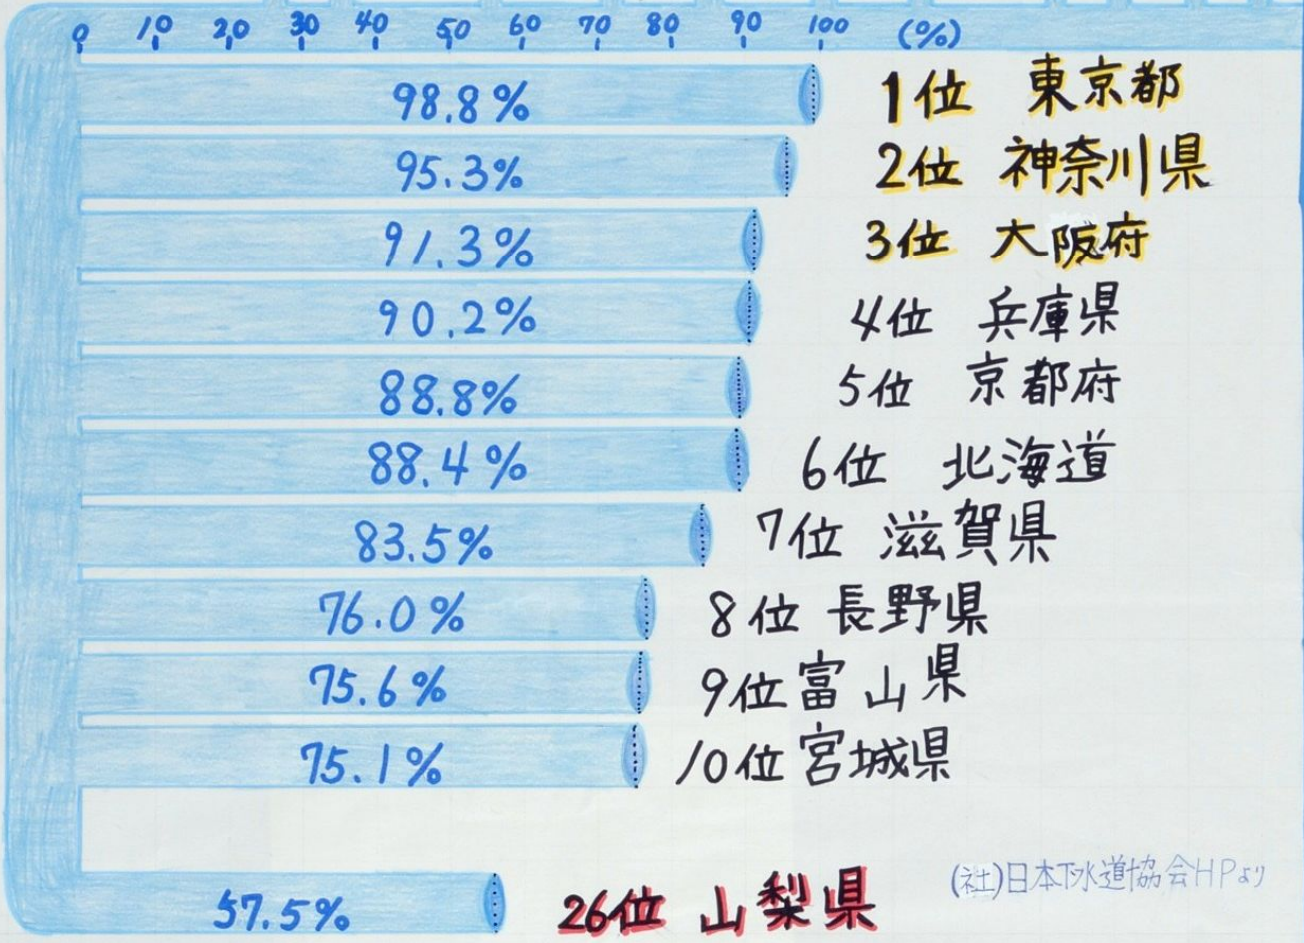 0 10 20 30 40 50 60 70 80 90 100 (%)
98.8% 1位 東京都
95.3% 2位 神奈川県
91.3% 3位 大阪府
90.2% 4位 兵庫県
88.8% 5位 京都府
88.4% 6位 北海道
83.5% 7位 滋賀県
76.0% 8位 長野県
75.6% 9位 富山県
75.1% 10位 宮城県
(社)日本下水道協会HPより
57.5% 26位 山梨県